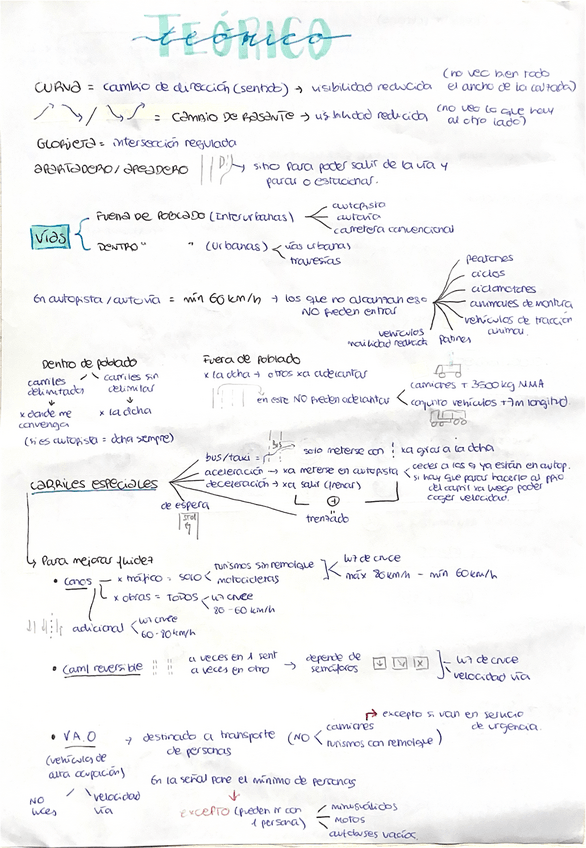 TEÓRICO
teórico
CURVA = cambio de dirección (sentido) → visibilidad reducida (no veo bien todo el ancho de la calzada)
= CAMBIO DE RASANTE → visibilidad reducida (no veo lo que hay al otro lado)
GLORIETA = intersección regulada
APARTADERO / APEADERO → sitio para poder salir de la vía y
parar o estacionar.
VÍAS
FUERA DE POBLADO (Interurbanas)
autopista
autovía
carretera convencional
DENTRO " " (urbanas)
vías urbanas
travesías
En autopista/autovía = mín 60 km/h → los que no alcanzan eso
NO pueden entrar
peatones
ciclos
ciclomotores
animales de montura
vehículos de tracción
animal.
patines
vehículos
movilidad reducida
Dentro de poblado
carriles
delimitados
x donde me
convenga
carriles sin
delimitar
x la dcha
(si es autopista = dcha siempre)
Fuera de poblado
x la dcha → otros xa adelantar
en este NO pueden adelantar
camiones + 3500 kg MMA
conjunto vehículos + 7m longitud
CARRILES ESPECIALES
bus/taxi =
BUS
solo meterse con
xa giros a la dcha
aceleración → xa meterse en autopista
ceder a los q ya están en autop.
si hay que parar hacerlo al ppio
del carril xa luego poder
coger velocidad.
deceleración → xa salir (frenar)
+
trenzado
de espera
STOP
Para mejorar fluidez
• Canos
x tráfico = SOLO
turismos sin remolque
motocicletas
luz de cruce
máx 80km/h - mín 60 km/h
x obras = TODOS
luz cruce
80-60 km/h
adicional
luz cruce
60-80 km/h
• Carril reversible
a veces en 1 sent
a veces en otro
→ depende de
semáforos
↓ X
luz de cruce
velocidad vía
• V.A.O
(vehículos de
alta ocupación)
NO
luces
velocidad
vía
→ destinado a transporte
de personas
(NO
camiones
turismos con remolque)
excepto si van en servicio
de urgencia.
En la señal pone el mínimo de personas
EXCEPTO (pueden ir con
1 persona)
minusválidos
motos
autobuses vacíos.